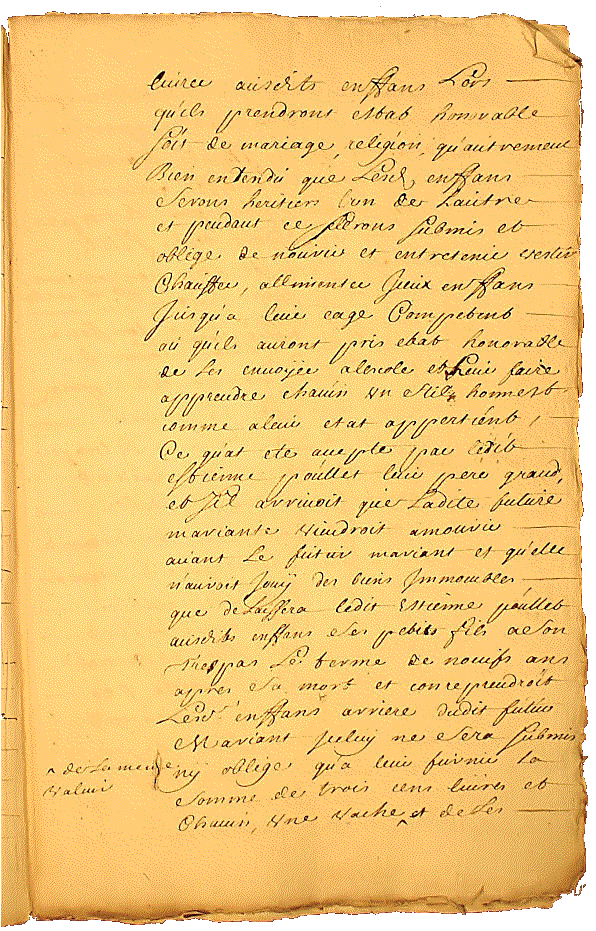 livrer ausdits enffans Lors
qu'ils prendront estat honorable
soit de mariage, religion, qu'autrement
Bien entendu que Lesd. enffans
Serons heritiers l'un de Lautre
et pendant ce Serons submis et
oblige de nourir et entretenir vestir
Chauffer, allimenter Iceux enffans
Jusqu'a leur eage Competent
ou qu'ils auront pris etat honorable
de les envoyer alecole et Leur faire
apprendre chacun un Stil honnest
comme aleur etat appertient,
Ce qu'at ete accepte par ledit
Estienne poullet leur pere grand,
et s'il arrivoit que Ladite future
mariante viendroit amourir
avant Le futur mariant et qu'elle
n'auroit Jouy des biens Immeubles
que delaissera ledit Estienne poullet
ausdits enffans Ses petits fils aeson
Trespas Le terme de noeufs ans
apres Sa mort et conreprendroit
Lesd. enffans arriere dudit futur
Mariant Iceluy ne Sera submis
ny oblige qu'a leur furnir La
Somme de trois cens livres et
Chacun, une vache ^ et de Les
^ de La meme
valeur